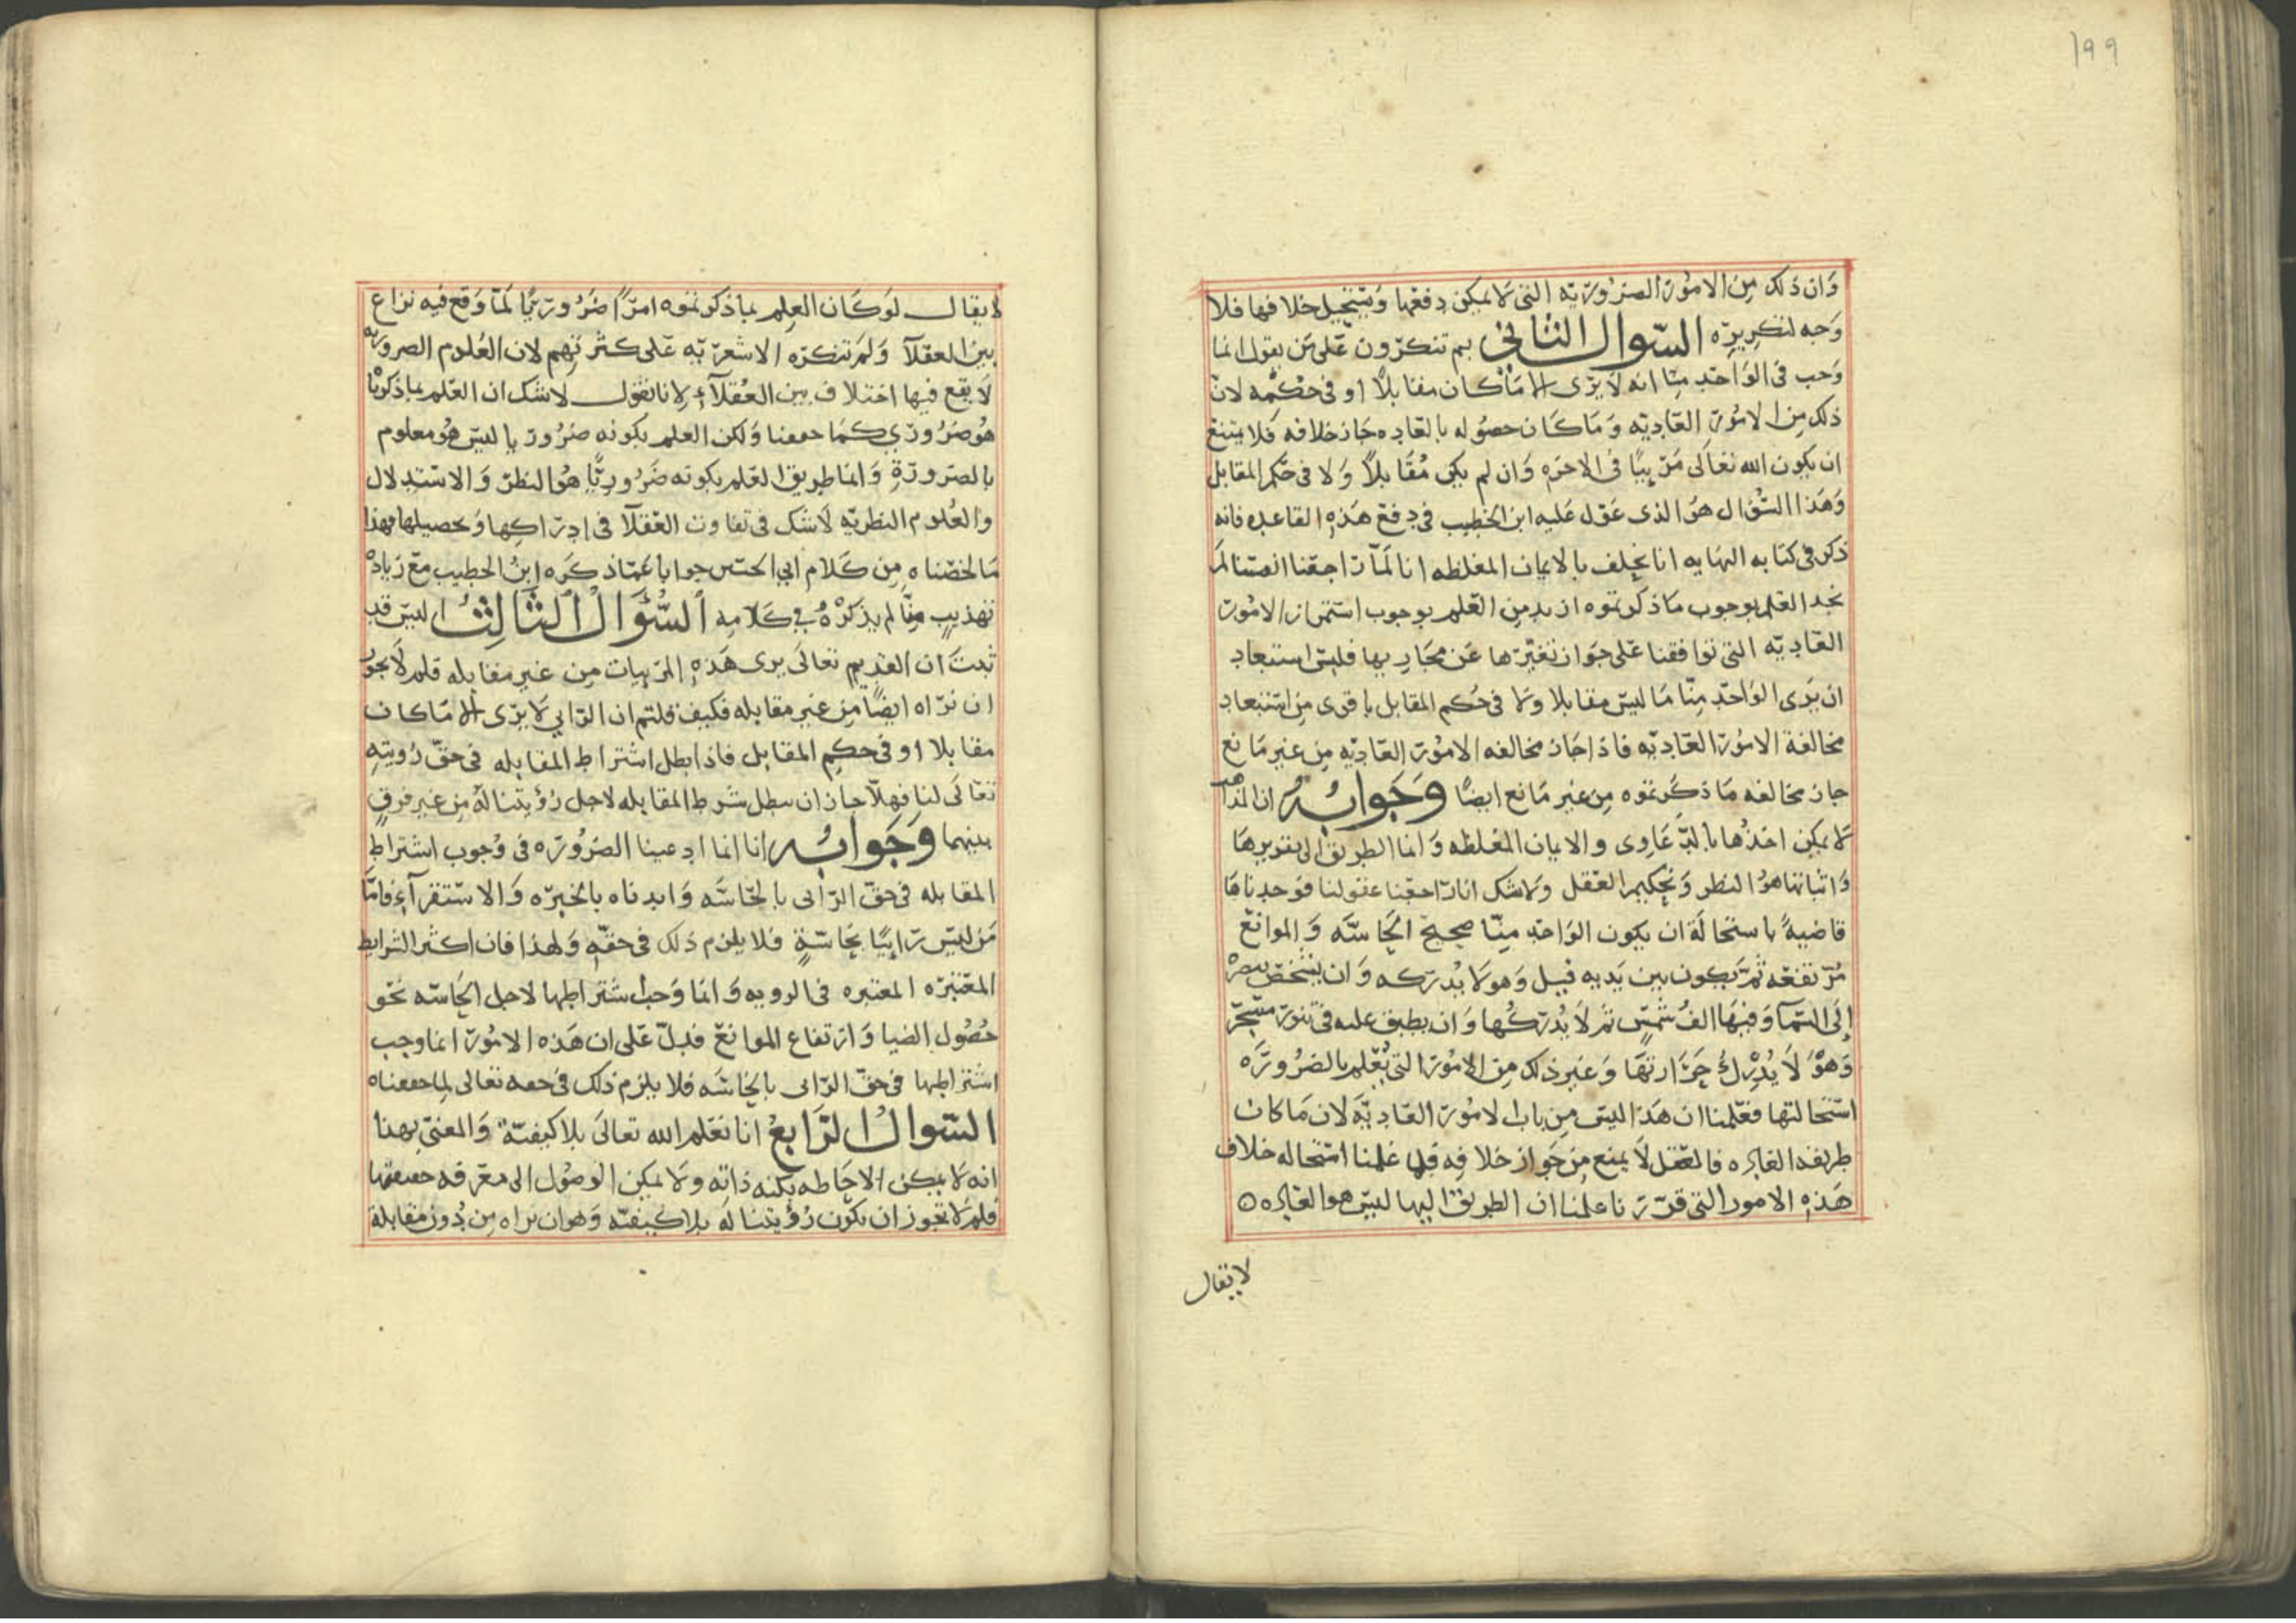 ١٩٩
وان ذلك من الامور الضروريه التى لا يمكن دفعها ويستحيل خلافها فلا
وجه لتكريره السوال الثانى بم تنكرون على من يقول انما
وجب فى الواحد منا انه لا يرى الا ما كان مقابلا او فى حكمه لان
ذلك من الامور العاديه وما كان حصوله بالعاده جاز خلافه فلا يمتنع
ان يكون الله تعالى مرييا فى الاخره وان لم يكن مقابلا ولا فى حكم المقابل
وهذا السؤال هو الذى عول عليه ابن الخطيب فى دفع هذه القاعده فانه
ذكر فى كتابه النهايه انا نحلف بالايمان المغلظه انا لما راجعنا انفسنا لم
نجد العلم بوجوب ما ذكرتموه ازيد من العلم بوجوب استمرار الامور
العاديه التى توافقنا على جواز تغيرها عن مجاريها فليس استبعاد
ان يرى الواحد منا ما ليس مقابلا ولا فى حكم المقابل باقوى من استبعاد
مخالفة الامور العاديه فاذا جاز مخالفه الامور العاديه من غير مانع
جاز مخالفه ما ذكرتموه من غير مانع ايضا وجوابه ان المذاهب
لا يمكن اخذها بالدعاوى والايمان المغلظه وانما الطريق الى تقريرها
واثباتها هو النظر وتحكيم العقل ولا شك انا راجعنا عقولنا فوجدناها
قاضية باستحالة ان يكون الواحد منا صحيح الحاسه والموانع
مرتفعه ثم يكون بين يديه فيل وهو لا يدركه وان يشخص ببصره
الى السما وفيها الف شمس ثم لا يدركها وان يطبق عليه فى تنور مسجر
وهو لا يدرك حرارتها وغير ذلك من الامور التى نعلم بالضروره
استحالتها فعلمنا ان هذا ليس من باب الامور العاديه لان ما كان
طريقه العاده فالعقل لا يمنع من جواز خلافه فلما علمنا استحاله خلاف
هذه الامور التى قررنا علمنا ان الطريق اليها ليس هو العاده ه
لا يقال
لا يقال لو كان العلم بما ذكرتموه امرا ضروريا لما وقع فيه نزاع
بين العقلآ ولم تنكره الاشعريه على كثرتهم لان العلوم الضروريه
لا يقع فيها اختلاف بين العقلآء لانا نقول لا شك ان العلم بما ذكرناه
هو ضرورى كما حققنا ولكن العلم بكونه ضروريا ليس هو معلوم
بالضرورة وانما طريق العلم بكونه ضروريا هو النظر والاستدلال
والعلوم النظريه لا شك فى تفاوت العقلآ فى ادراكها وتحصيلها فهذا
ما لخصناه من كلام ابى الحسين جوابا عما ذكره ابن الخطيب مع زياده
تهذيب منا لم يذكره فى كلامه السؤال الثالث اليس قد
ثبت ان القديم تعالى يرى هذه المرييات من غير مقابله فلم لا يجوز
ان نراه ايضا من غير مقابله فكيف قلتم ان الرايى لا يرى الا ما كان
مقابلا او فى حكم المقابل فاذا بطل اشتراط المقابله فى حق رويته
تعالى لنا فهلا جاز ان يبطل شرط المقابله لاجل رؤيتنا له من غير فرق
بينهما وجوابه انا انما ادعينا الضروره فى وجوب اشتراط
المقابله فى حق الرائى بالحاسه وايدناه بالخبره والاستقرآء فاما
من ليس رائيا بحاسة فلا يلزم ذلك فى حقه ولهذا فان اكثر الشرايط
المعتبره المعتبره فى الرويه وانما وجب اشتراطها لاجل الحاسه نحو
حصول الضيا وارتفاع الموانع فدل على ان هذه الامور انما وجب
اشتراطها فى حق الرائى بالحاسه فلا يلزم ذلك فى حقه تعالى لما حققناه
السوال الرابع انا نعلم الله تعالى بلا كيفية والمعنى بهذا
انه لا يمكن الاحاطه بكنه ذاته ولا يمكن الوصول الى معرفه حقيقتها
فلم لا تجوز ان تكون رؤيتنا له بلا كيفيه وهو ان نراه من دون مقابلة